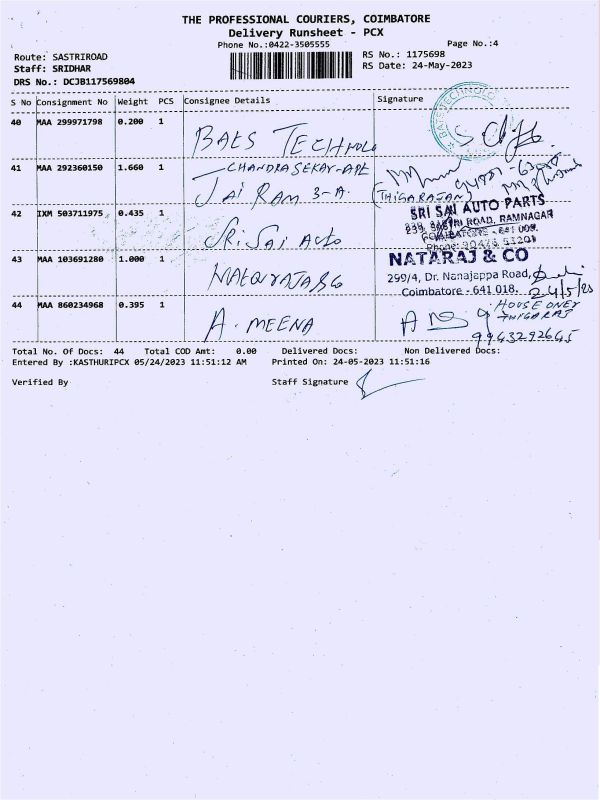 THE PROFESSIONAL COURIERS, COIMBATORE
Delivery Runsheet - PCX
Phone No.:0422-3505555
Page No.:4
Route: SASTRIROAD
Staff: SRIDHAR
DRS No.: DCJB117569804
RS No.: 1175698
RS Date: 24-May-2023
S No Consignment No Weight PCS Consignee Details Signature
40 MAA 299971798 0.200 1
BAES
41 MAA 292360150 1.660 1 CHANDRASEKAR-APE
JAI RAM 3-A.
(THIGARAJAN)
42 IXM 503711975 0.435 1
SRI SAI AUTO
SRI SAI AUTO PARTS
239, SASTRI ROAD, RAMNAGAR
COIMBATORE - 641 009.
43 MAA 103691280 1.000 1
NATARAJ & CO
299/4, Dr. Nanajappa Road,
Coimbatore - 641 018. 24/5/23
44 MAA 860234968 0.395 1
A. MEENA
HOUSE ONER
THIGARAJ
9943292645
Total No. Of Docs: 44 Total COD Amt: 0.00 Delivered Docs: Non Delivered Docs:
Entered By :KASTHURIPCX 05/24/2023 11:51:12 AM Printed On: 24-05-2023 11:51:16
Verified By Staff Signature